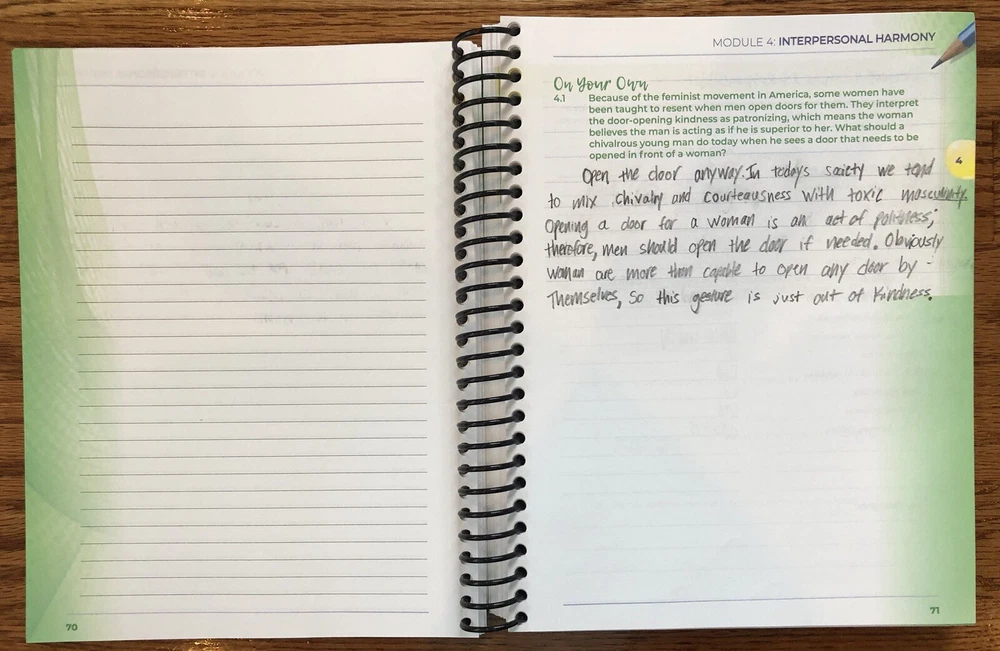 MODULE 4: INTERPERSONAL HARMONY
On Your Own
4.1 Because of the feminist movement in America, some women have
been taught to resent when men open doors for them. They interpret
the door-opening kindness as patronizing, which means the woman
believes the man is acting as if he is superior to her. What should a
chivalrous young man do today when he sees a door that needs to be
opened in front of a woman?
4
Open the door anyway. In todays society we tend
to mix chivalry and courteausness with toxic masculinity.
Opening a door for a woman is an act of politness;
therefore, men should open the door if needed. Obviously
woman are more than capable to open any door by -
Themselves, So this gesture is just out of Kindness.
70
71